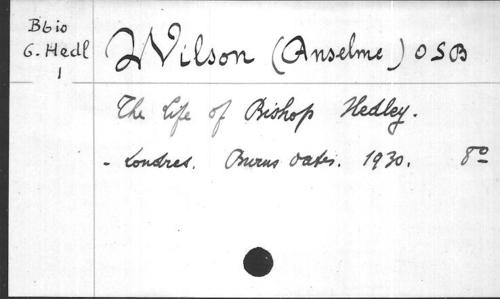 Bbio
G. Hedl
1
Wilson (Anselme) OSB
The Life of Bishop Hedley.
- Londres. Burns Oates. 1930. 8º